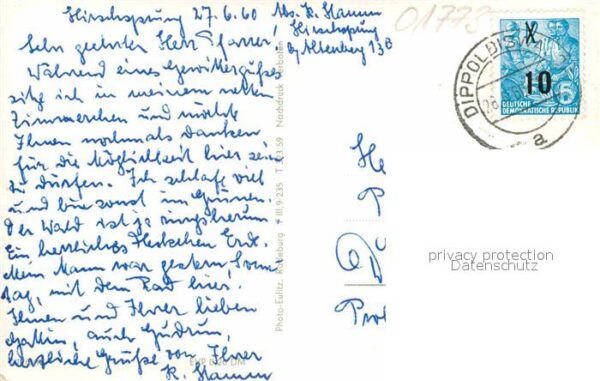 Hirschsprung 27.6.60
Abs. K. Hamm
Hirschsprung
b/ Altenberg 13B
01773
Sehr geehrter Herr Pfarrer!
Während eines Gewittergusses
sitz ich in meinem netten
Zimmerchen und möchte
Ihnen nochmals danken
für die Möglichkeit hier sein
zu dürfen. Ich schlafe viel
und bin sonst im Grünen.
Der Wald ist ja ringsherum
Ein herrliches Fleckchen Erde.
Mein Mann war gestern, Sonn-
tag, mit dem Rad hier.
Ihnen und Ihrer lieben
Gattin, auch Gudrun,
herzliche Grüße von Ihrer
K. Hamm
He
P
D
Pro
DIPPOLDIS
a
X
10
5
DEUTSCHE
DEMOKRATISCHE REPUBLIK
Photo-Eulitz, III.9.235
Nachdruck verboten
EVP 0.20 DM
privacy protection
Datenschutz